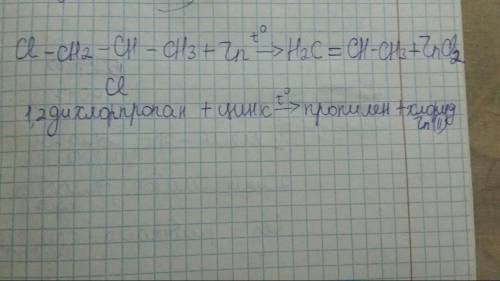 Cl - CH2 - CH - CH3 + Zn t° → H2C = CH - CH3 + ZnCl2
Cl
1,2 дихлорпропан + цинк t° → пропилен + хлорид
Zn (II)